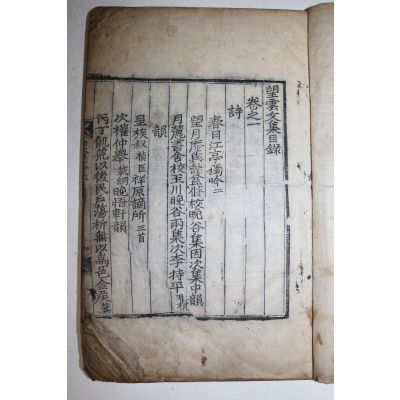 望雲文集目錄
卷之一
詩
春日江亭偶吟二
望月庵與諸益修校晩谷集因次集中韻
月麓書會校玉川晩谷兩集次李持平
韻
呈族叔 祥原謫所三首
次權仲擧 晩悟軒韻
丙丁飢荒以後民戶蕩析無以爲邑金侯